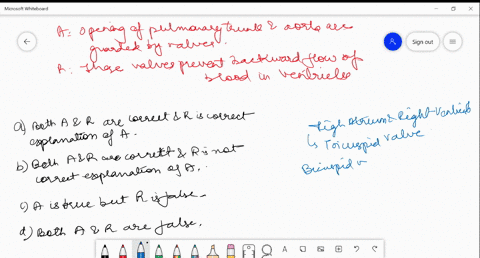 Microsoft Whiteboard
Sign out
A: Opening of pulmonary trunk & aorta are
guarded by valves.
R: These valves prevent backward flow of
blood in ventricles
a) Both A & R are correct & R is correct
explanation of A.
b) Both A & R are correct & R is not
correct explanation of A.
c) A is true but R is false.
d) Both A & R are false.
Right Atrium & Right Ventricle
↳ Tricuspid valve
Bicuspid v